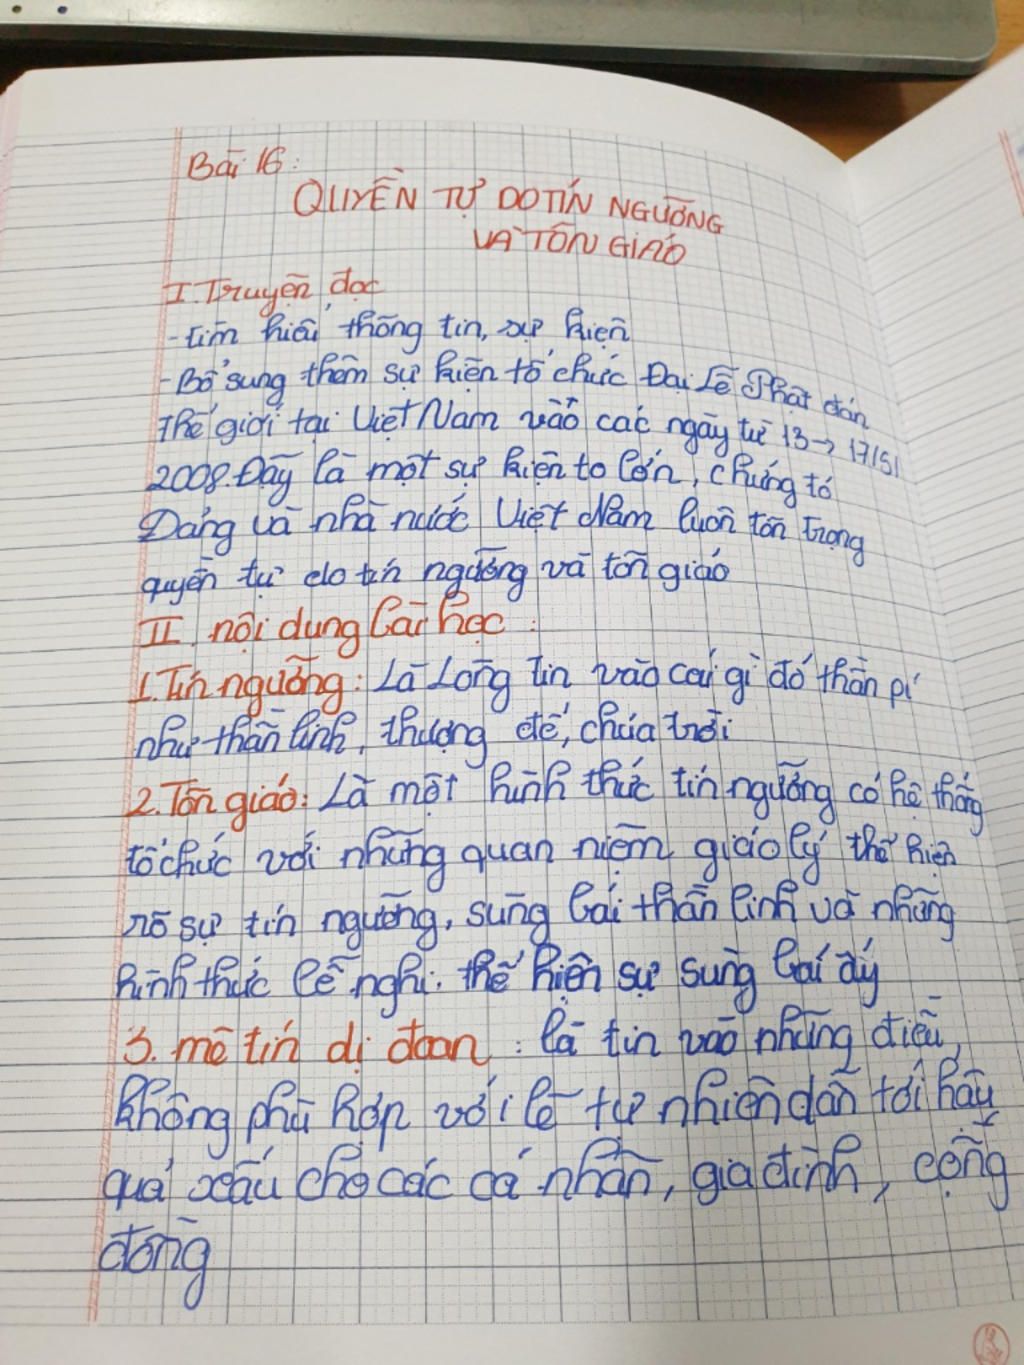 Bài 16:
QUYỀN TỰ DO TÍN NGƯỠNG
VÀ TÔN GIÁO
I. Truyện đọc
- Tìm hiểu thông tin, sự kiện
- Bổ sung thêm sự kiện tổ chức Đại Lễ Phật đán
Thế giới tại Việt Nam vào các ngày từ 13 → 17/5/
2008. Đây là một sự kiện to lớn, chứng tỏ
Đảng và nhà nước Việt Nam luôn tôn trọng
quyền tự do tín ngưỡng và tôn giáo
II. nội dung bài học:
1. Tín ngưỡng: Là Lòng tin vào cái gì đó thần pí
như thần linh, thượng đế, chúa trời
2. Tôn giáo: Là một hình thức tín ngưỡng có hệ thống
tổ chức với những quan niệm giáo lý thể hiện
rõ sự tín ngưỡng, sùng bái thần linh và những
hình thức lễ nghi. thể hiện sự sùng bái ấy
3. mê tín dị đoan: là tin vào những điều,
không phù hợp với lẽ tự nhiên dẫn tới hậu
quả xấu cho các cá nhân, gia đình, cộng
đồng